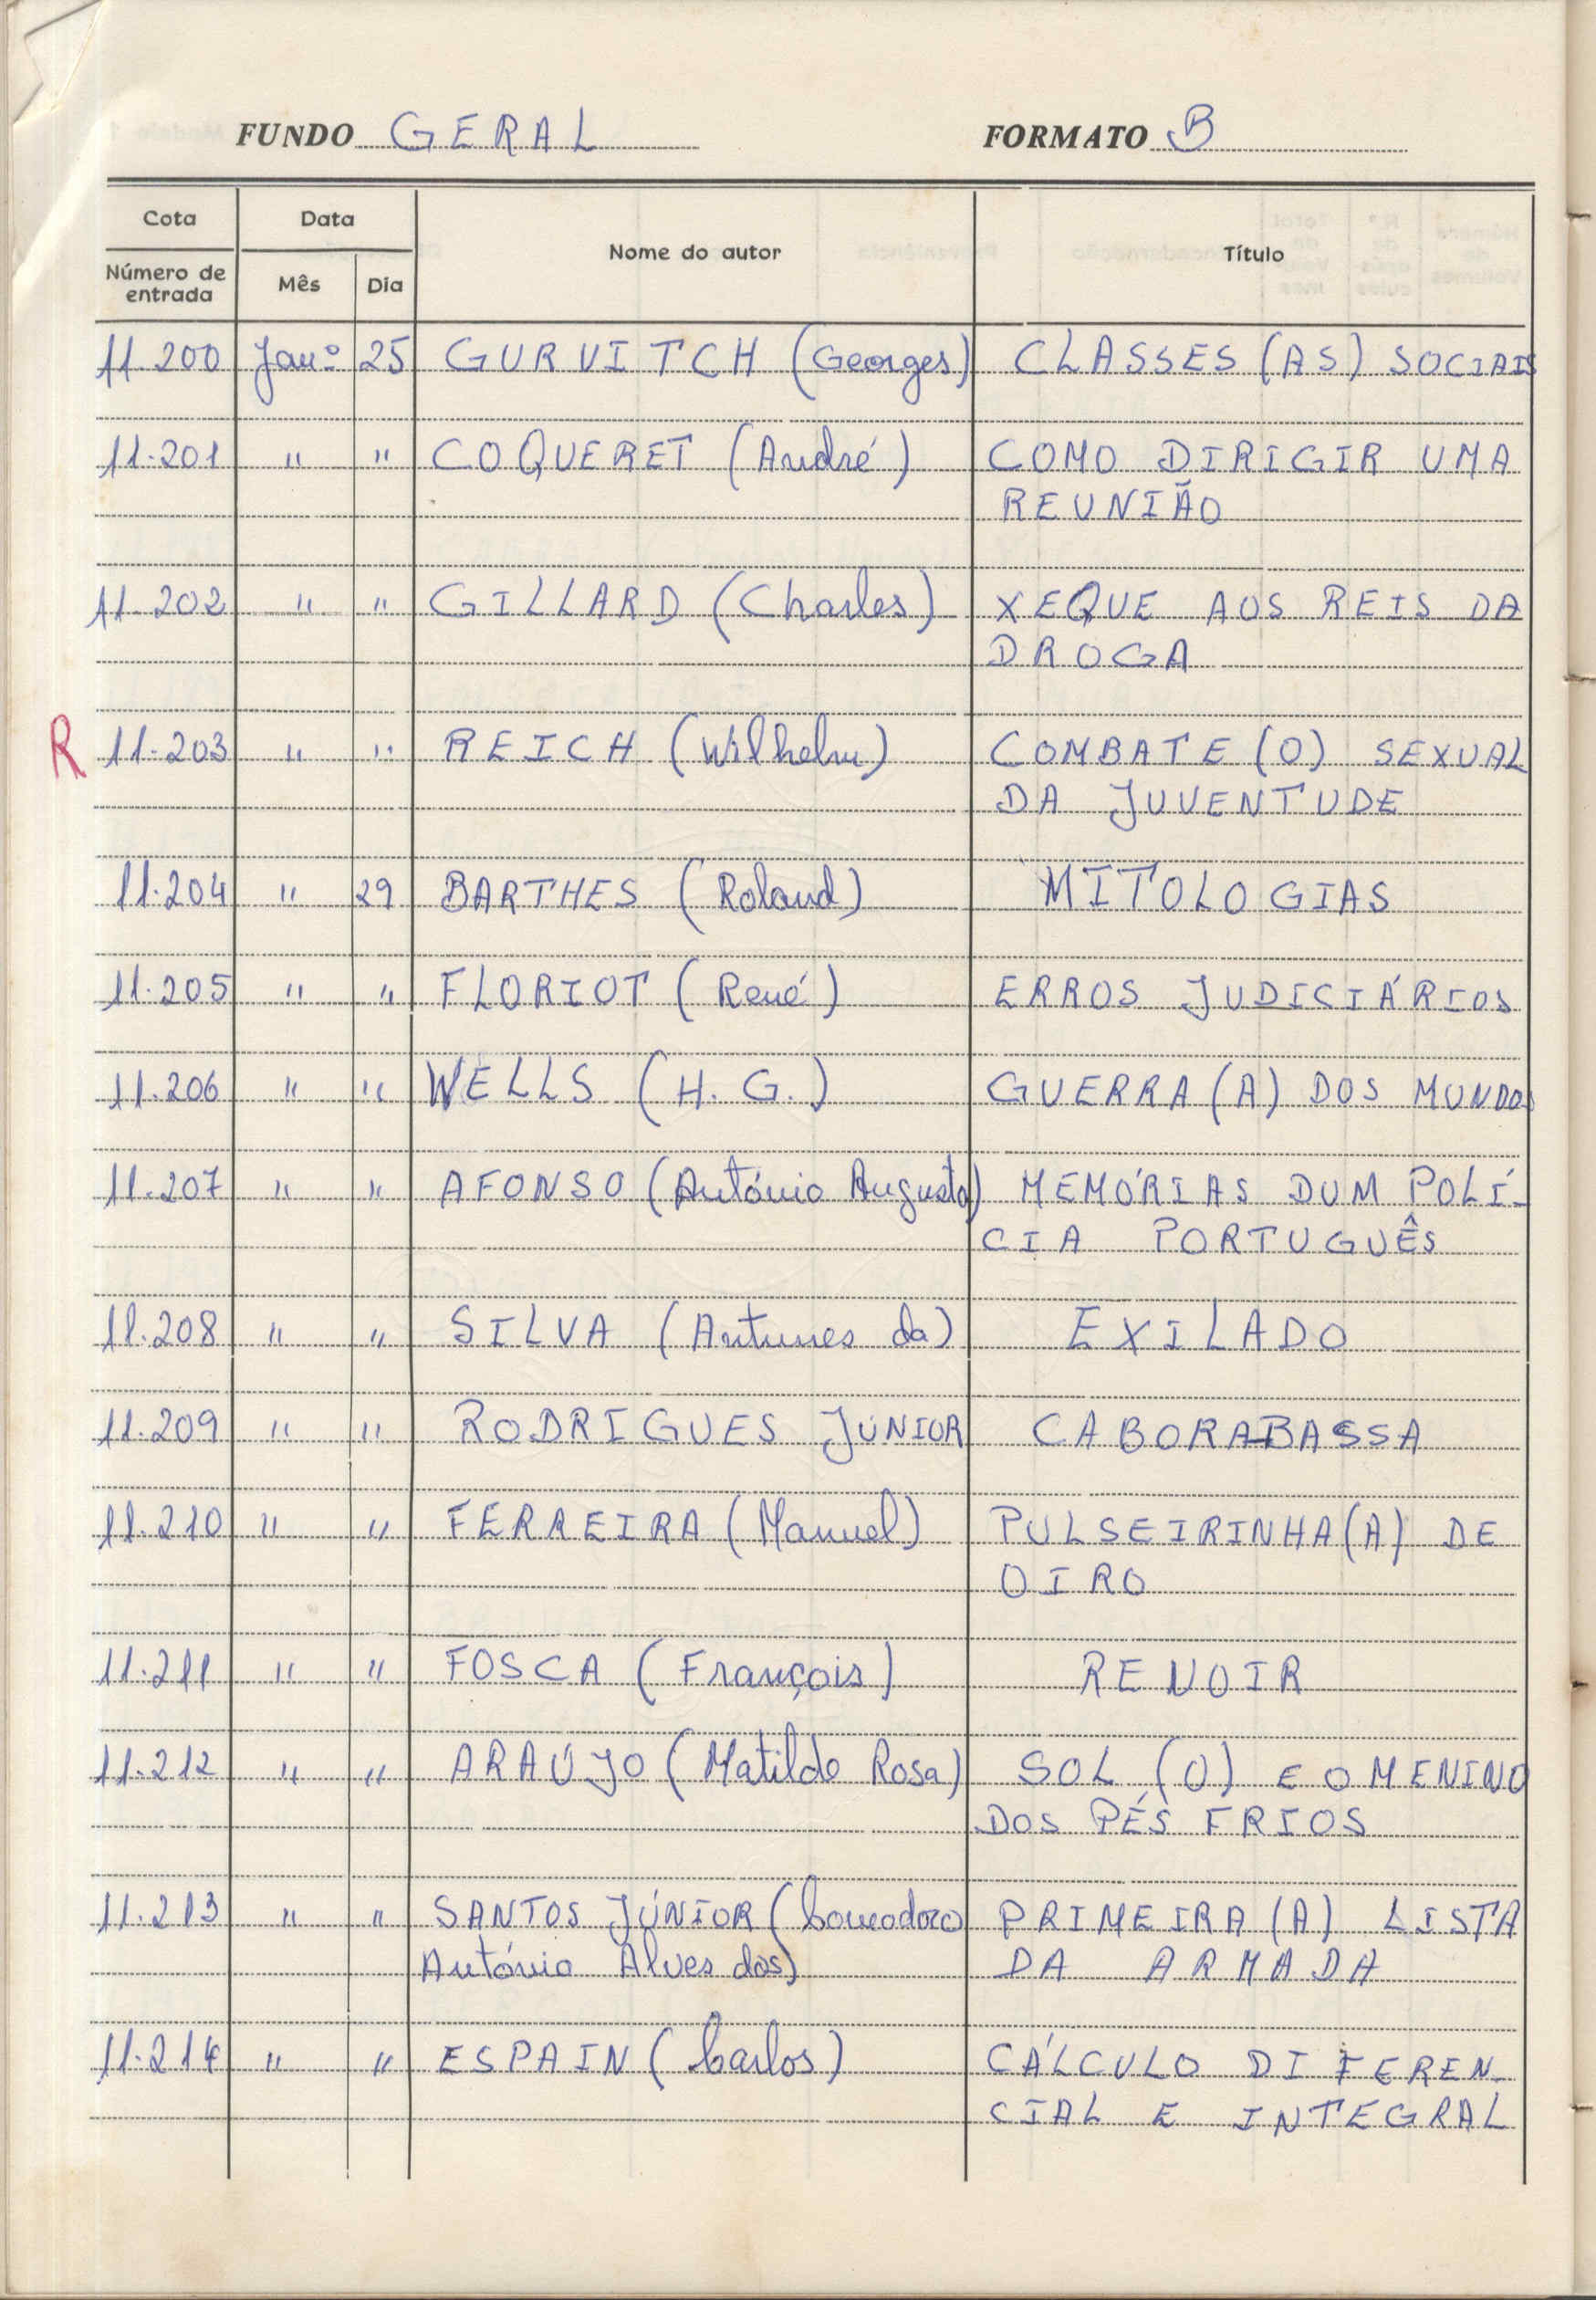 FUNDO GERAL FORMATO B
Cota Data Nome do autor Título
Número de entrada Mês Dia
11.200 Janº 25 GURVITCH (Georges) CLASSES (AS) SOCIAIS
11.201 " " COQUERET (André) COMO DIRIGIR UMA
REUNIÃO
11.202 " " GILLARD (Charles) XEQUE AOS REIS DA
DROGA
R 11.203 " " REICH (Wilhelm) COMBATE (O) SEXUAL
DA JUVENTUDE
11.204 " 29 BARTHES (Roland) MITOLOGIAS
11.205 " " FLORIOT (René) ERROS JUDICIÁRIOS
11.206 " " WELLS (H. G.) GUERRA (A) DOS MUNDOS
11.207 " " AFONSO (António Augusto) MEMÓRIAS DUM POLÍ-
CIA PORTUGUÊS
11.208 " " SILVA (Antunes da) EXILADO
11.209 " " RODRIGUES JÚNIOR CABORABASSA
11.210 " " FERREIRA (Manuel) PULSEIRINHA (A) DE
OIRO
11.211 " " FOSCA (François) RENOIR
11.212 " " ARAÚJO (Matilde Rosa) SOL (O) E O MENINO
DOS PÉS FRIOS
11.213 " " SANTOS JÚNIOR ( PRIMEIRA (A) LISTA
António Alves dos) DA ARMADA
11.214 " " ESPAIN (Carlos) CÁLCULO DIFEREN-
CIAL E INTEGRAL